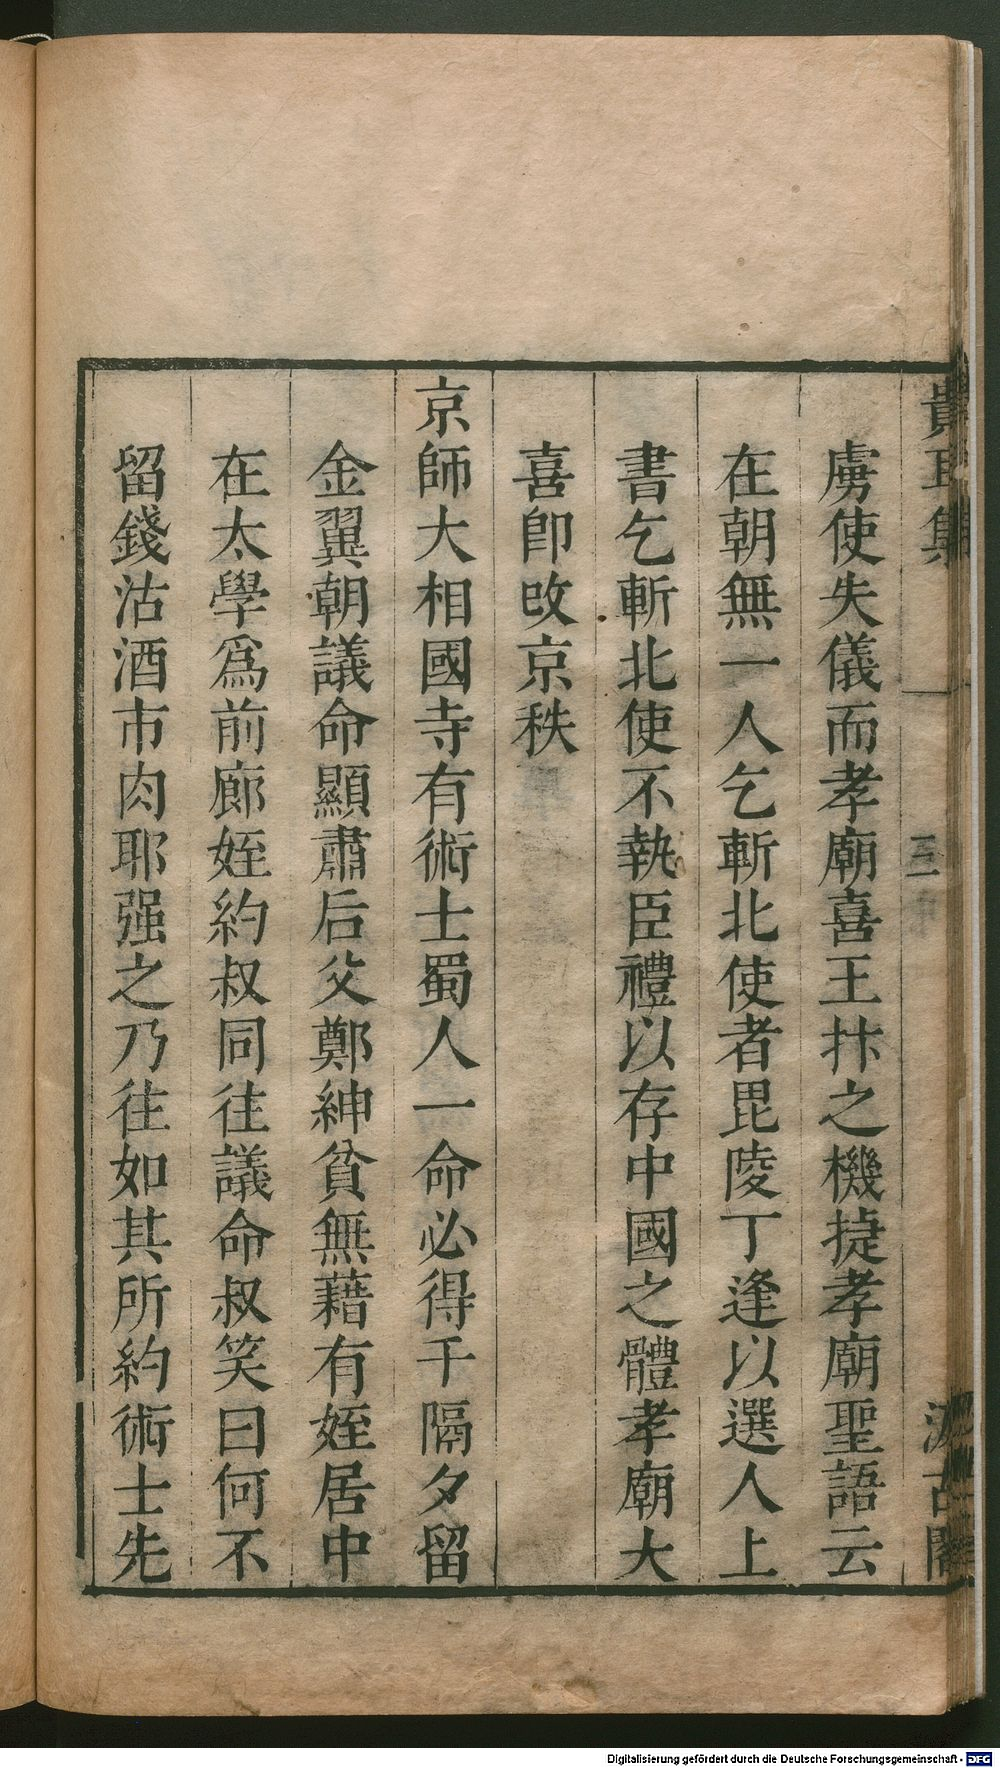 貴耳集
三
汲古閣
虜使失儀而孝廟喜王抃之機捷孝廟聖語云
在朝無一人乞斬北使者毘陵丁逢以選人上
書乞斬北使不執臣禮以存中國之體孝廟大
喜卽改京秩
京師大相國寺有術士蜀人一命必得千隔夕留
金翼朝議命顯肅后父鄭紳貧無藉有姪居中
在太學爲前廊姪約叔同徃議命叔笑曰何不
留錢沽酒市肉耶强之乃徃如其所約術士先
Digitalisierung gefördert durch die Deutsche Forschungsgemeinschaft - DFG